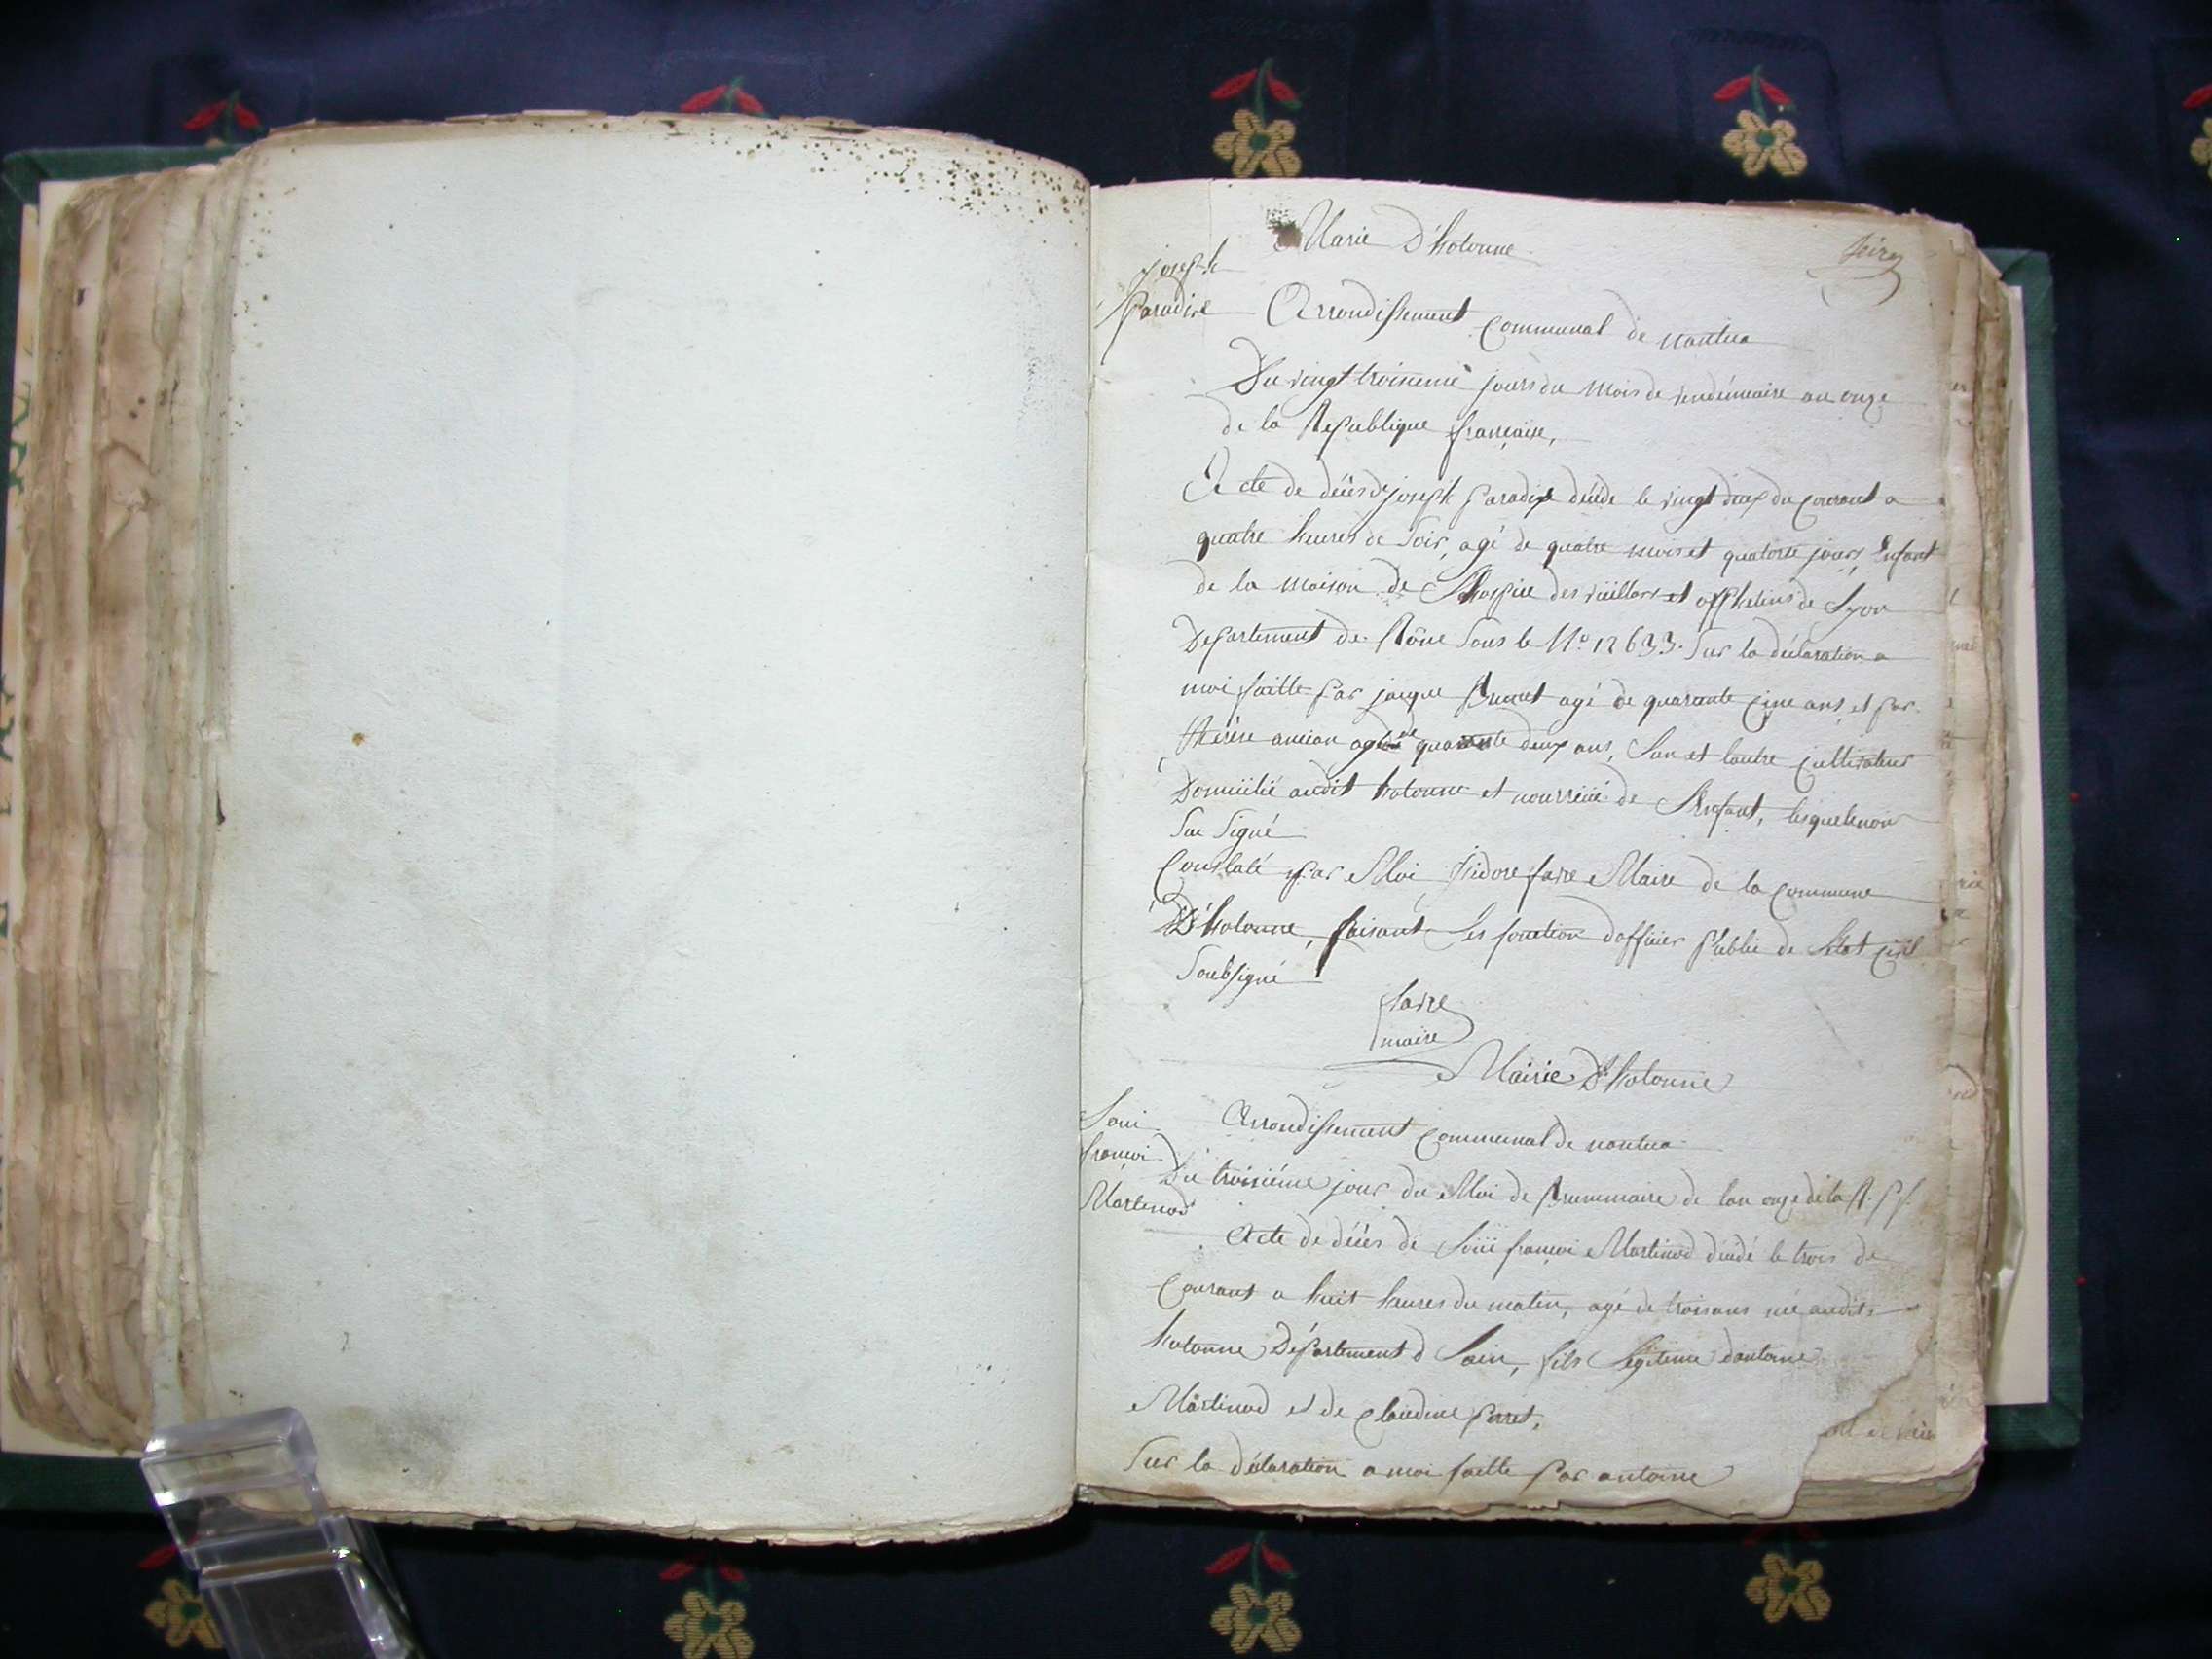 Marie D'hotonne
joseph
Paradise
Arrondissement communal de nantua
Du vingt troisieme jours du mois de vendémiaire an onze
de la Republique française,
Acte de déces de joseph Paradis décédé le vingt deux du courant a
quatre heures de Soir, agé de quatre mois et quatorse jours, Enfant
de la maison de Lhospice des vieillars et orphelins de Lyon
Departement de Rône Sous le No. 12633. Sur la déclaration a
moi faitte par jacque Brunet agé de quarante cinc ans, et par
thérèse ancian agé de quarante deux ans, Lun et lautre cultivateur
Domicilié audit hotonne et nourricié de Lenfant, lesquels non
Su Signé
Constaté par Moi Isidore favre Maire de la commune
D'hotonne, faisant Les fonction dofficier Public de Létat civil
Soubsigné
favre
maire
Mairie D'hotonne
Loui
françoi
Martinod
Arrondissement communal de nantua
Du troisiéme jour du Moi de Brummaire de lan onze de la R. f.
Acte de déces de Loüi françoi Martinod décédé le trois de
Courant a huit heures du matin, agé de trois ans né audit
hotonne Département d Lain, fils Légitime dantoine
Martinod et de Claudine Perret,
Sur la déclaration a moi faitte par antoine